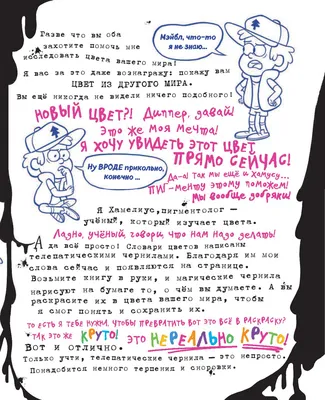 Разве что вы оба
захотите помочь мне
исследовать цвета вашего мира!
Я вас за это даже вознагражу: покажу вам
ЦВЕТ ИЗ ДРУГОГО МИРА.
Вы ещё никогда не видели ничего подобного!
Мэйбл, что-то
я не знаю...
НОВЫЙ ЦВЕТ?! Диппер, давай!
Это же моя мечта!
Я ХОЧУ УВИДЕТЬ ЭТОТ ЦВЕТ
ПРЯМО СЕЙЧАС!
Ну ВРОДЕ прикольно,
конечно ...
Да-а! так мы ещё и хамусу...
ПИГ-менту этому поможем!
Мы вообще добряки!
Я Хамелиус, пигментолог –
учёный, который изучает цвета.
Ладно, учёный, говори, что нам надо делать!
А да всё просто! Словари цветов написаны
телепатическими чернилами. Благодаря им мои
слова сейчас и появляются на странице.
Возьмите книгу в руки, и магические чернила
нарисуют на бумаге то, о чём вы думаете. А вы
раскрасите их в цвета вашего мира, чтобы
я смог понять и сохранить их.
ТО ЕСТЬ Я ТЕБЕ НУЖНА, ЧТОБЫ ПРЕВРАТИТЬ ВОТ ЭТО ВСЁ В РАСКРАСКУ?
ТАК ЭТО ЖЕ КРУТО! ЭТО НЕРЕАЛЬНО КРУТО!
Вот и отлично.
Только учти, телепатические чернила — это непросто.
Понадобится немного терпения и сноровки.